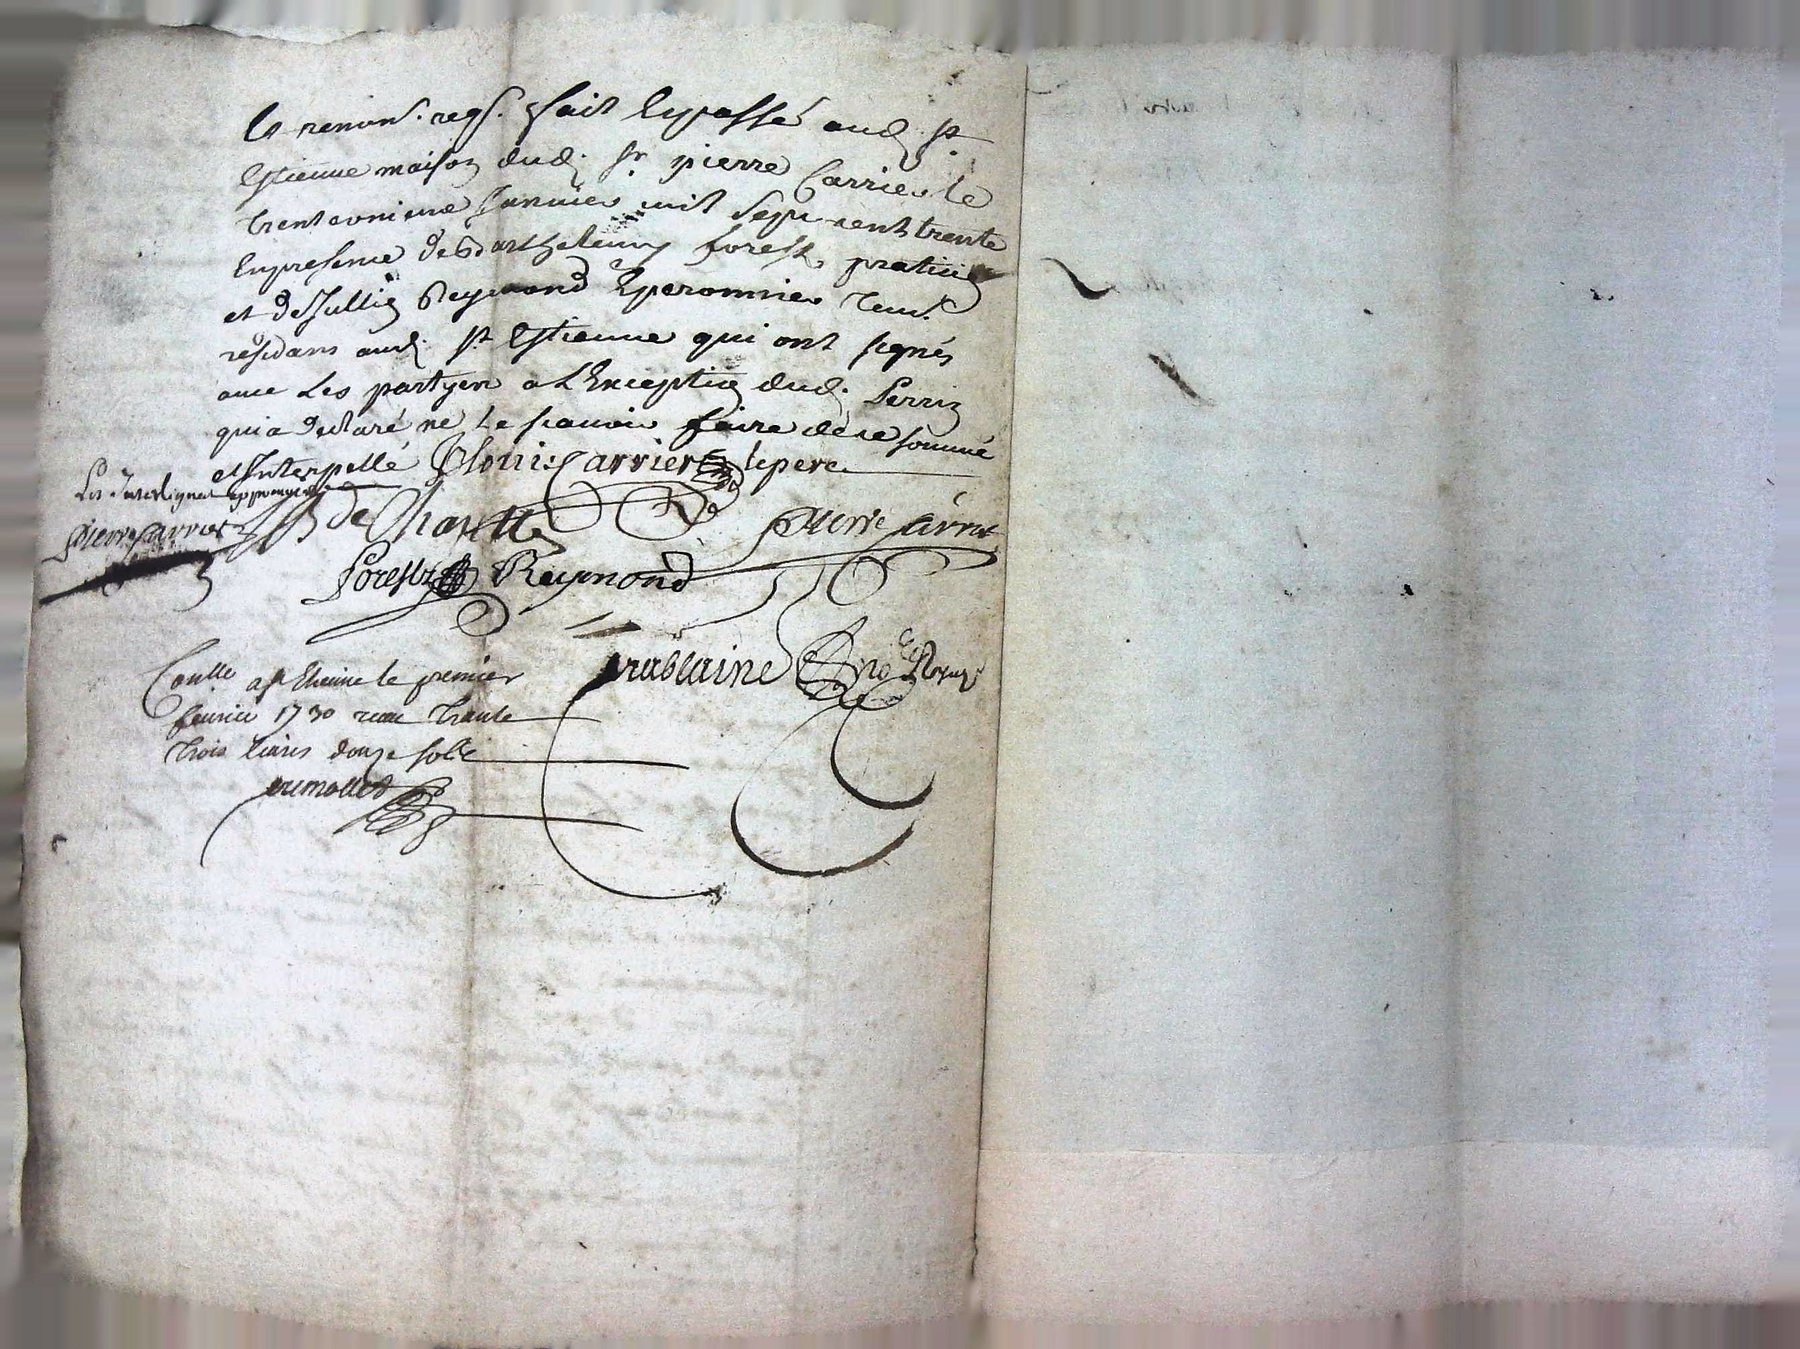 et renon. reqs. fait et passé aud. St
Estienne maison dud. Sr. pierre Carrier le
trente unieme Janvier mil sept cent trente
En presence de Barthelemy forestz praticien
et de Jullien Reymond Eperonnier tous
residans aud. St Estienne qui ont signés
avec Les partyes a L'Exception dud. Perrin
qui a declaré ne Le scavoir faire de ce sommé
et Interpellé JLouis Carrier le pere
Les Interlignes approuvés
Pierre Carrier de Pierre Carrier
Forestz Reymond
Prablaine Nre Royal
Conllé a St Etienne le premier
feurier 1730 receu trante
trois liures douze solz